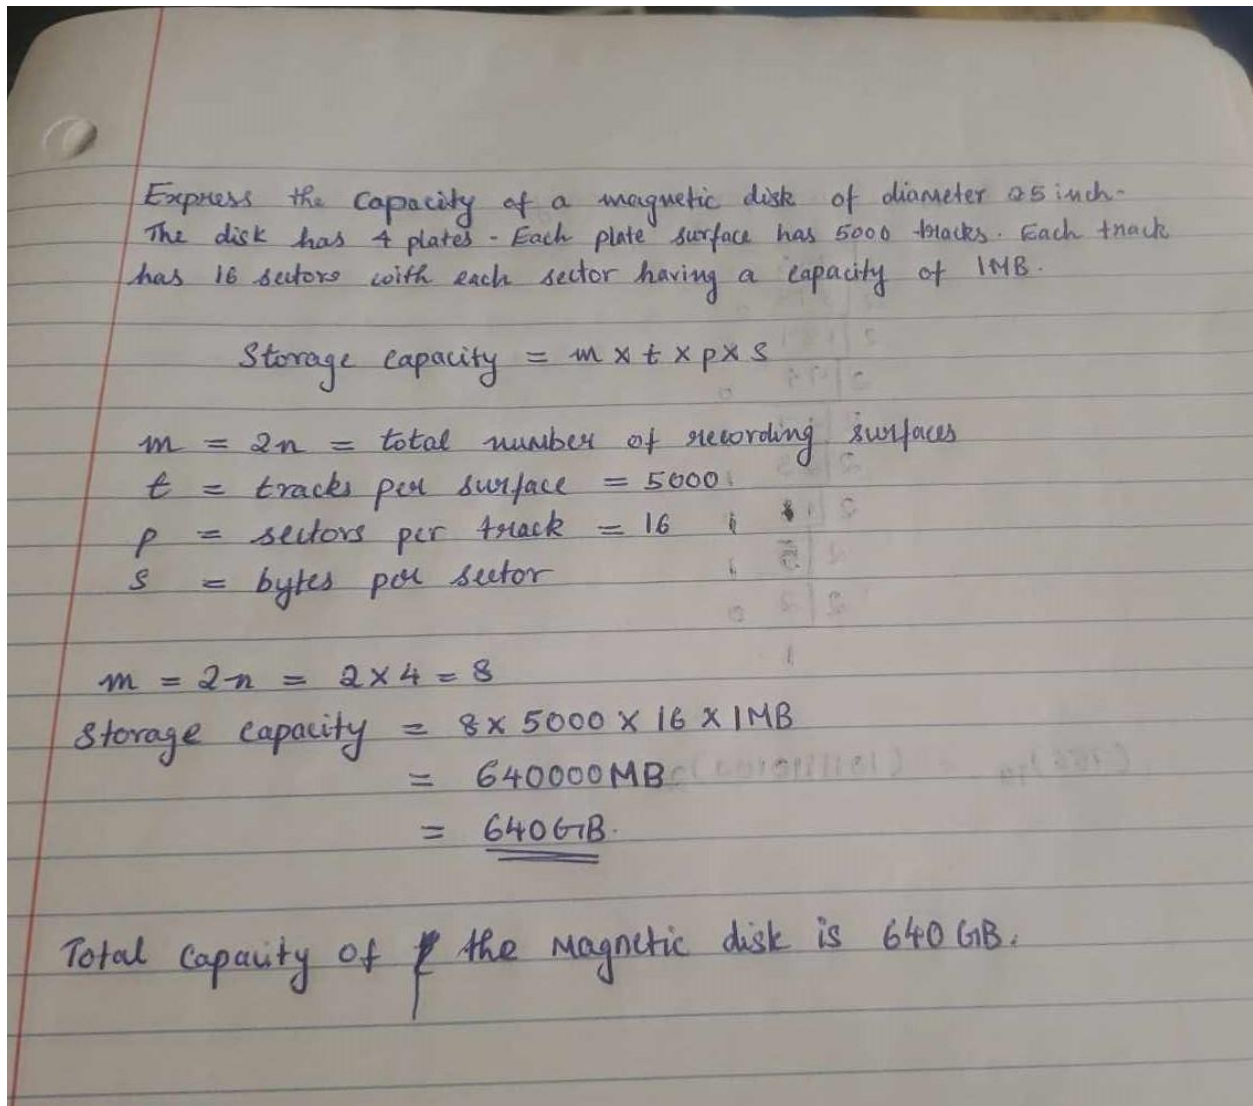 Express the capacity of a magnetic disk of diameter 25 inch.
The disk has 4 plates. Each plate surface has 5000 tracks. Each track
has 16 sectors with each sector having a capacity of 1MB.
Storage capacity = m x t x p x s
m = 2n = total number of recording surfaces
t = tracks per surface = 5000
p = sectors per track = 16
s = bytes per sector
m = 2n = 2 x 4 = 8
Storage capacity = 8 x 5000 x 16 x 1MB
= 640000 MB
= 640 GB.
Total capacity of the Magnetic disk is 640 GB.